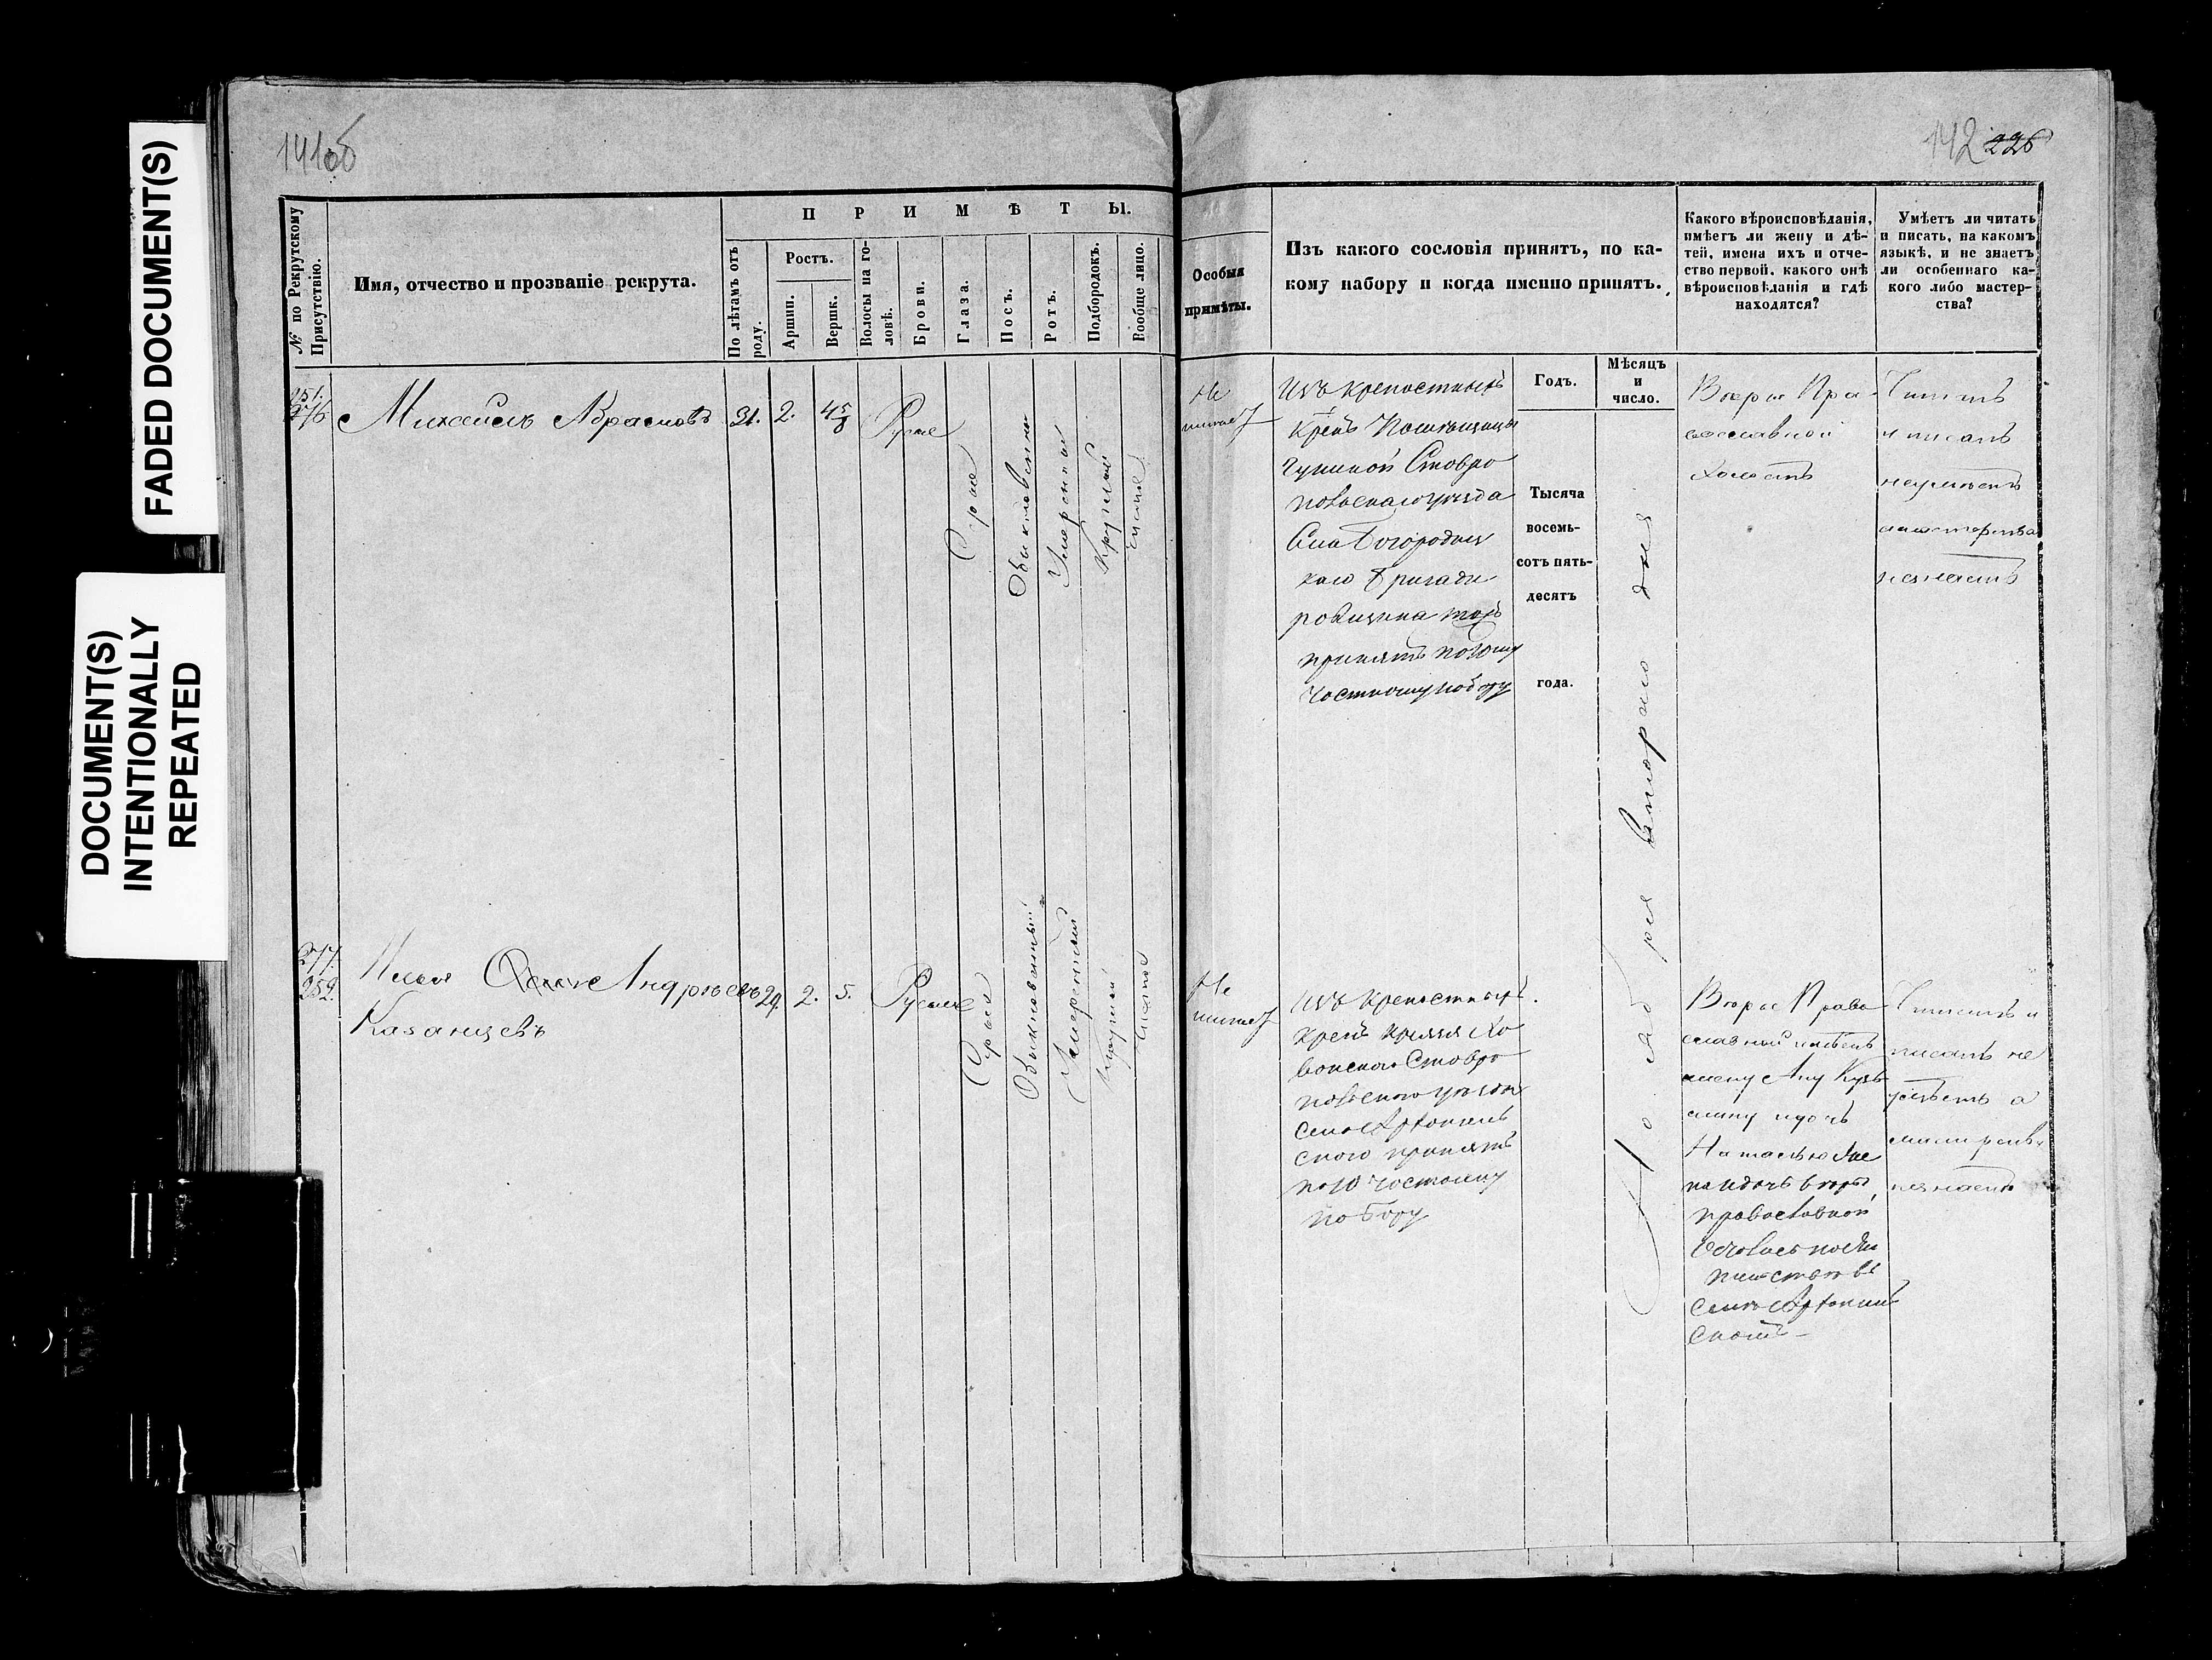 FADED DOCUMENT(S)
DOCUMENT(S)
INTENTIONALLY
REPEATED
141об
142 226
№ по Рекрутскому
Присутствію.
Имя, отчество и прозваніе рекрута.
П Р И М Ѣ Т Ы.
По лѣтамъ отъ
роду.
Ростъ.
Аршин.
Вершк.
Волосы на го-
ловѣ.
Брови.
Глаза.
Носъ.
Ротъ.
Подбородокъ.
Вообще лицо.
Особыя
примѣты.
Изъ какого сословія принятъ, по ка-
кому набору и когда именно принятъ.
Какого вѣроисповѣданія,
имѣетъ ли жену и дѣ-
тей, имена ихъ и отче-
ство первой, какого онѣ
вѣроисповѣданія и гдѣ
находятся?
Умѣетъ ли читать
и писать, на какомъ
языкѣ, и не знаетъ
ли особеннаго ка-
кого либо мастер-
ства?
Годъ.
Мѣсяцъ
и
число.
Тысяча
восемь-
сотъ пять-
десятъ
года.
251.
276
Михаилъ Абрамовъ
31.
2.
4 5/8
Русые
Сѣрые
Обыкновенный
Умеренный
Круглый
Чистое
Не
имеет
Изъ крепостныхъ
крень Помещицы
Ставро
польскаго уезда
Села Богородиц
каго Бригади
ровщина тожъ
принятъ по 10му
частному набору
Ноября второго дня
Веры Пра
вославной
Холостъ
Читать
и писать
неумеетъ
мастерства
незнаетъ
277.
252.
Илья Андреевъ
Казанцевъ
29.
2.
5.
Русые
Сѣрые
Обыкновенный
Умеренный
Круглый
Чистое
Не
имеет
Изъ крепостныхъ
крень Князя Хо
ванского Ставро
польского уезда
Села Архангель
ского принятъ
по 10 частному
набору
Веры Право
славной имѣетъ
жену Анну Кузь
мину и дочь
Наталью
на и дочь веры
православной
в
селе Архангель
скомъ
Читать и
писать не
умѣетъ а
мастерства
незнаетъ